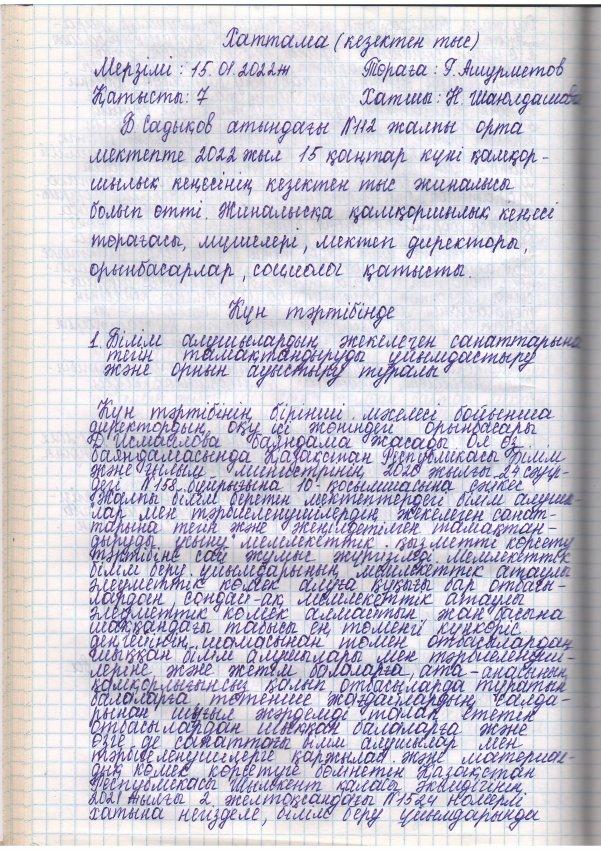 Хаттама (кезектен тыс)
Мерзімі: 15.01.2022ж Төраға: Г. Ашурметов
Қатысты: 7 Хатшы: Н. Шаюлдашова
Ф Садықов атындағы №112 жалпы орта
мектепте 2022 жыл 15 қаңтар күні қамқор-
шылық кеңесінің кезектен тыс жиналысы
болып өтті. Жиналысқа қамқоршнлық кеңесі
төрағасы, мүшелері, мектеп директоры,
орынбасарлар, социолог қатысты.
Күн тәртібінде
1. Білім алушылардың жекелеген санаттарына
тегін тамақтандыруды ұйымдастыру
және орнын ауыстыру туралы
Күн тәртібінің бірінші мәселесі бойынша
директордың оқу ісі жөніндегі орынбасары
Исмаилова баяндама жасады Ол өз
баяндамасында Қазақстан Республикасы Білім
және ғылым министрінің 2020 жылғы 24 сәуір-
дегі №158 бұйрығына 10-қосымшасына сәйкес
"Жалпы білім беретін мектептердегі білім алушы-
лар мен тәрбиеленушілердің жекелеген санат-
тарына тегін және жеңілдетілген тамақтан-
дыруды ұсыну" мемлекеттік қызметті көрсету
тәртібіне сай жұмыс жүргізілді Мемлекеттік
білім беру ұйымдарының мемлекеттік атаулы
әлеуметтік көмек алуға құқығы бар отбасы-
лардан сондай-ақ мемлекеттік атаулы
әлеуметтік көмек алмайтын жан басына
шаққандағы табысы ең төменгі күнкөріс
деңгейінің шамасынан төмен отбасылардан
шыққан білім алушылары мен тәрбиеленуші-
леріне және жетім балаларға, ата-анасының
қамқорлығынсыз қалып отбасыларда тұратын
балаларға төтенше жағдайлардың салда-
рынан шұғыл жәрдемді талап ететін
отбасылардан шыққан балаларға және
өзге де санаттағы білім алушылар мен
тәрбиеленушілерге қаржылай және материал-
дық көмек көрсетуге бөлінетін Қазақстан
Республикасы Шымкент қаласы әкімдігінің
2021 жылғы 2 желтоқсандағы №1524 нөмерлі
хатына негізделе, білім беру ұйымдарында